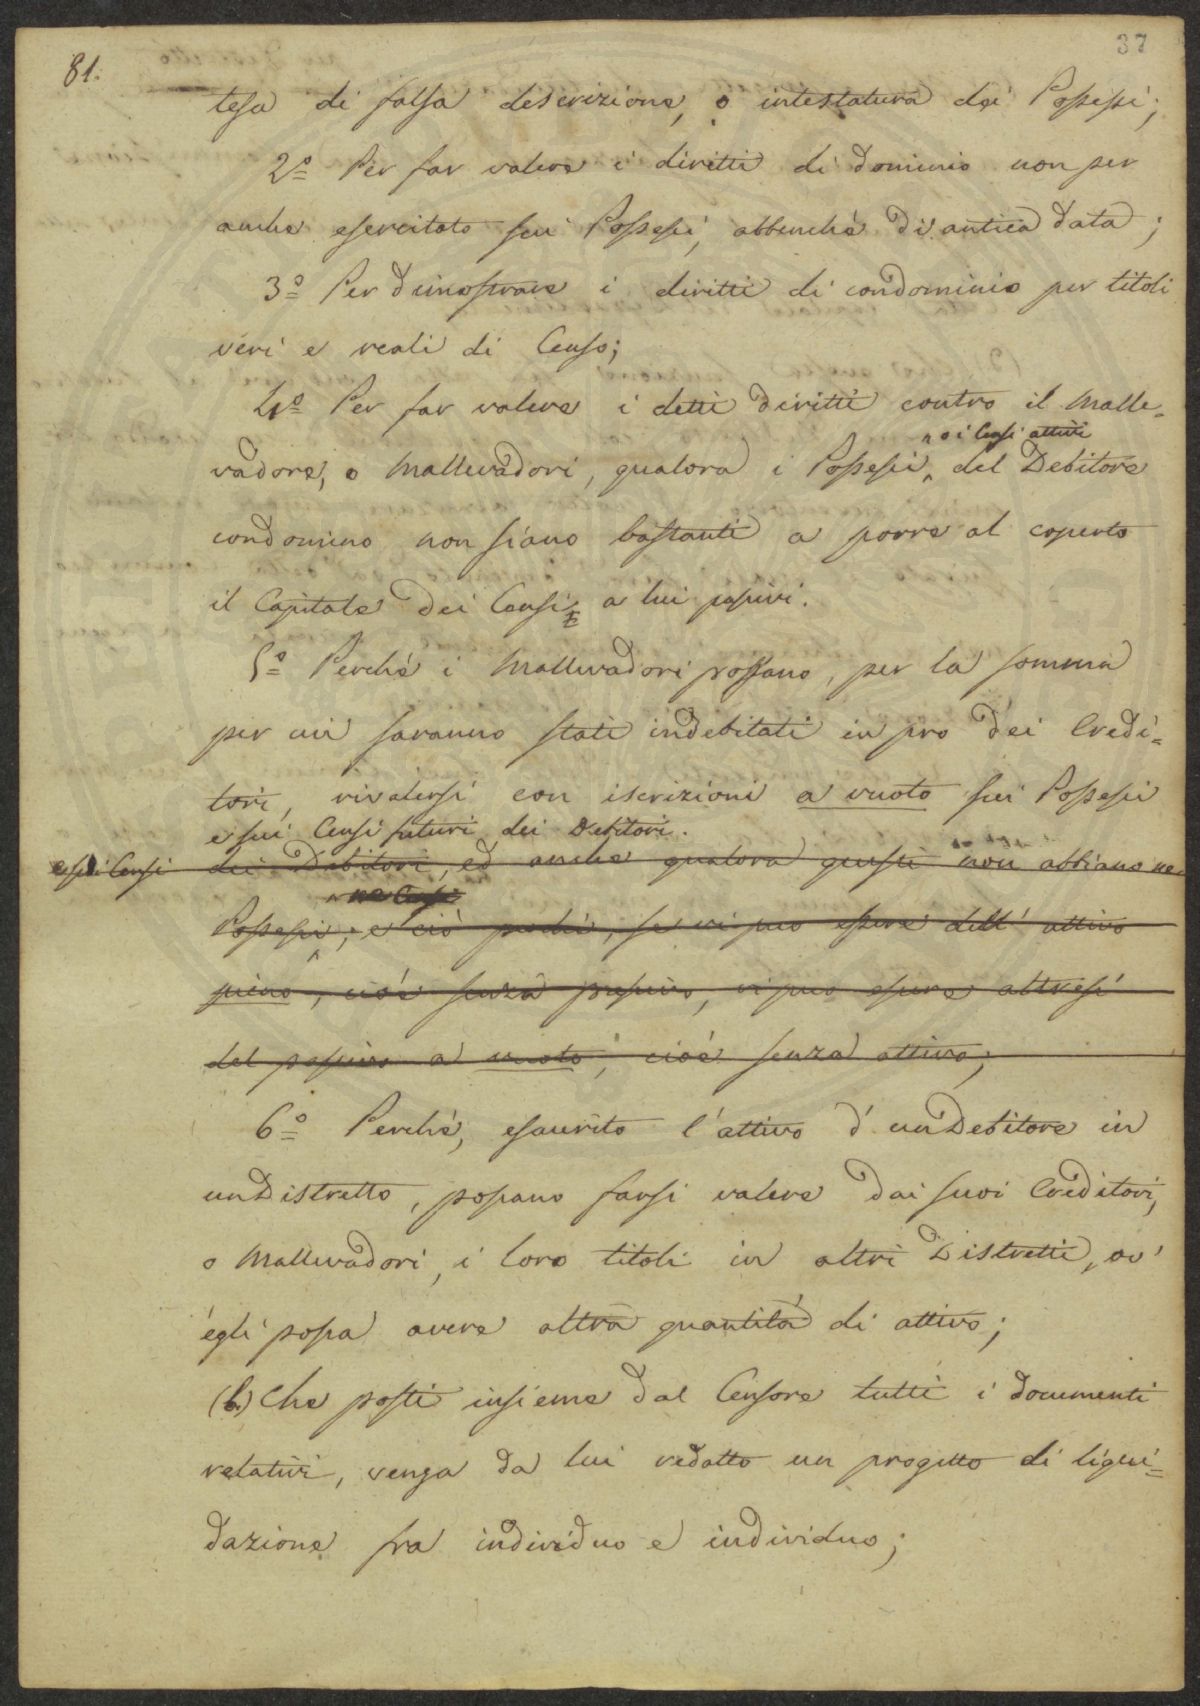 37
81.
tesa di falsa descrizione, o intestatura dei Possessi;
2º Per far valere i diritti di dominio non per
anche esercitato sui Possessi, abbenchè di antica data;
3º Per dimostrare i diritti di condominio per titoli
veri e reali di Censo;
4º Per far valere i detti diritti contro il Malle=
o i Censi attivi
vadore, o Mallevadori, qualora i Possessi del Debitore
condomino non siano bastanti a porre al coperto
il Capitale dei Censi a lui passivi.
5º Perchè i Mallevadori possano, per la somma
per cui saranno stati indebitati in pro dei Credi=
tori, rivalersi con iscrizioni a vuoto sui Possessi
e sui Censi futuri dei Debitori.
e sui Censi dei Debitori, ed anche qualora questi non abbiano ne
ne Censi
Possessi; e ciò perchè, se vi può essere dell' attivo
pieno, cioè senza passivo, vi può essere altresì
del passivo a vuoto, cioè senza attivo;
6º Perchè, esaurito l'attivo d'un Debitore in
un Distretto, possano farsi valere dai suoi Creditori,
o Mallevadori, i loro titoli in altri Distretti, ov'
egli possa avere altra quantità di attivo;
(b.) Che posti insieme dal Censore tutti i documenti
relativi, venga da lui redatto un progetto di liqui=
dazione fra individuo e individuo;